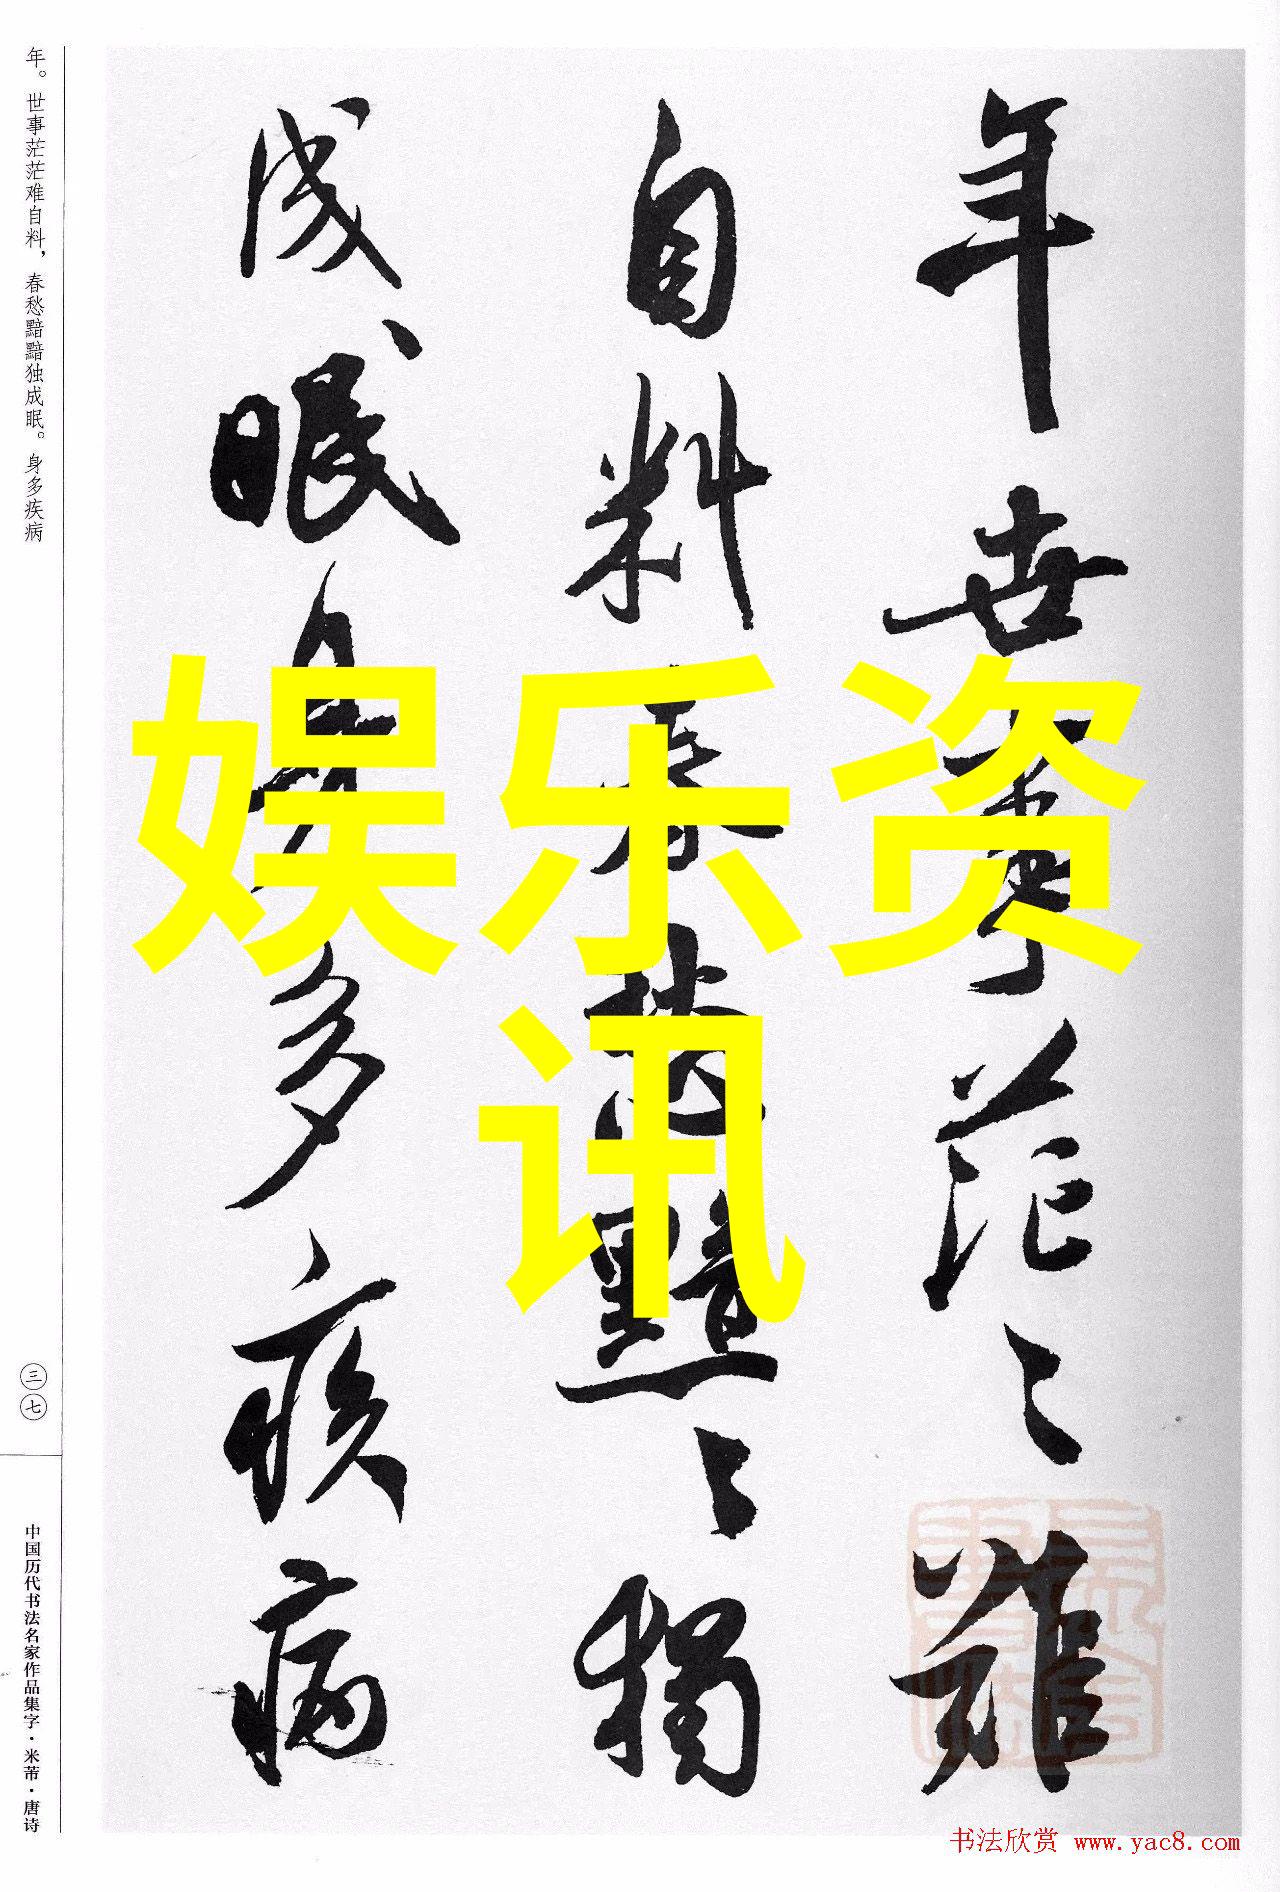 年。世事茫茫难自料，春愁黯黯独成眠。身多疾病
三七
中国历代书法名家作品集字·米芾·唐诗
年世事茫〻難
自料春愁黯〻獨
成眠身多疾病
娱乐资
讯
书法欣赏 www.yac8.com